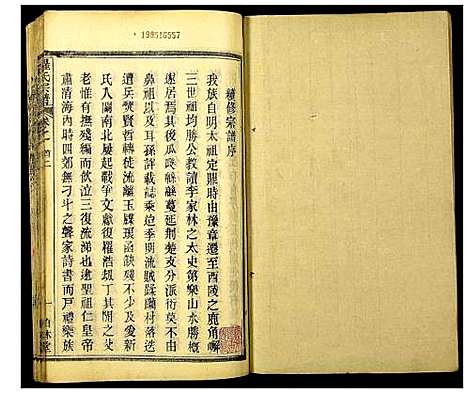 198516557
續修宗譜序
我族自明太祖定鼎時由豫章遷至酉陵之鹿角嶰
三世祖均勝公教讀李家林太史第樂山水勝概
遂居焉自是綿綿繩蔓延荊楚支分派衍莫不由
鼻祖以及耳孫詳載誌乘迨季明流賊蹂躪村落迭
遭兵燹賢哲轉徙流離玉牒琅函缺殘不少及愛新
氏入關南北屢起戰爭文獻名區浩劫叺丁其間之故
老惟有撫殘編而飲泣三復流涕也逮聖祖仁皇帝
肅清海內時四郊無刁斗之聲家詩書而戶禮樂族
羅氏宗譜
卷之首二
一
柏林堂